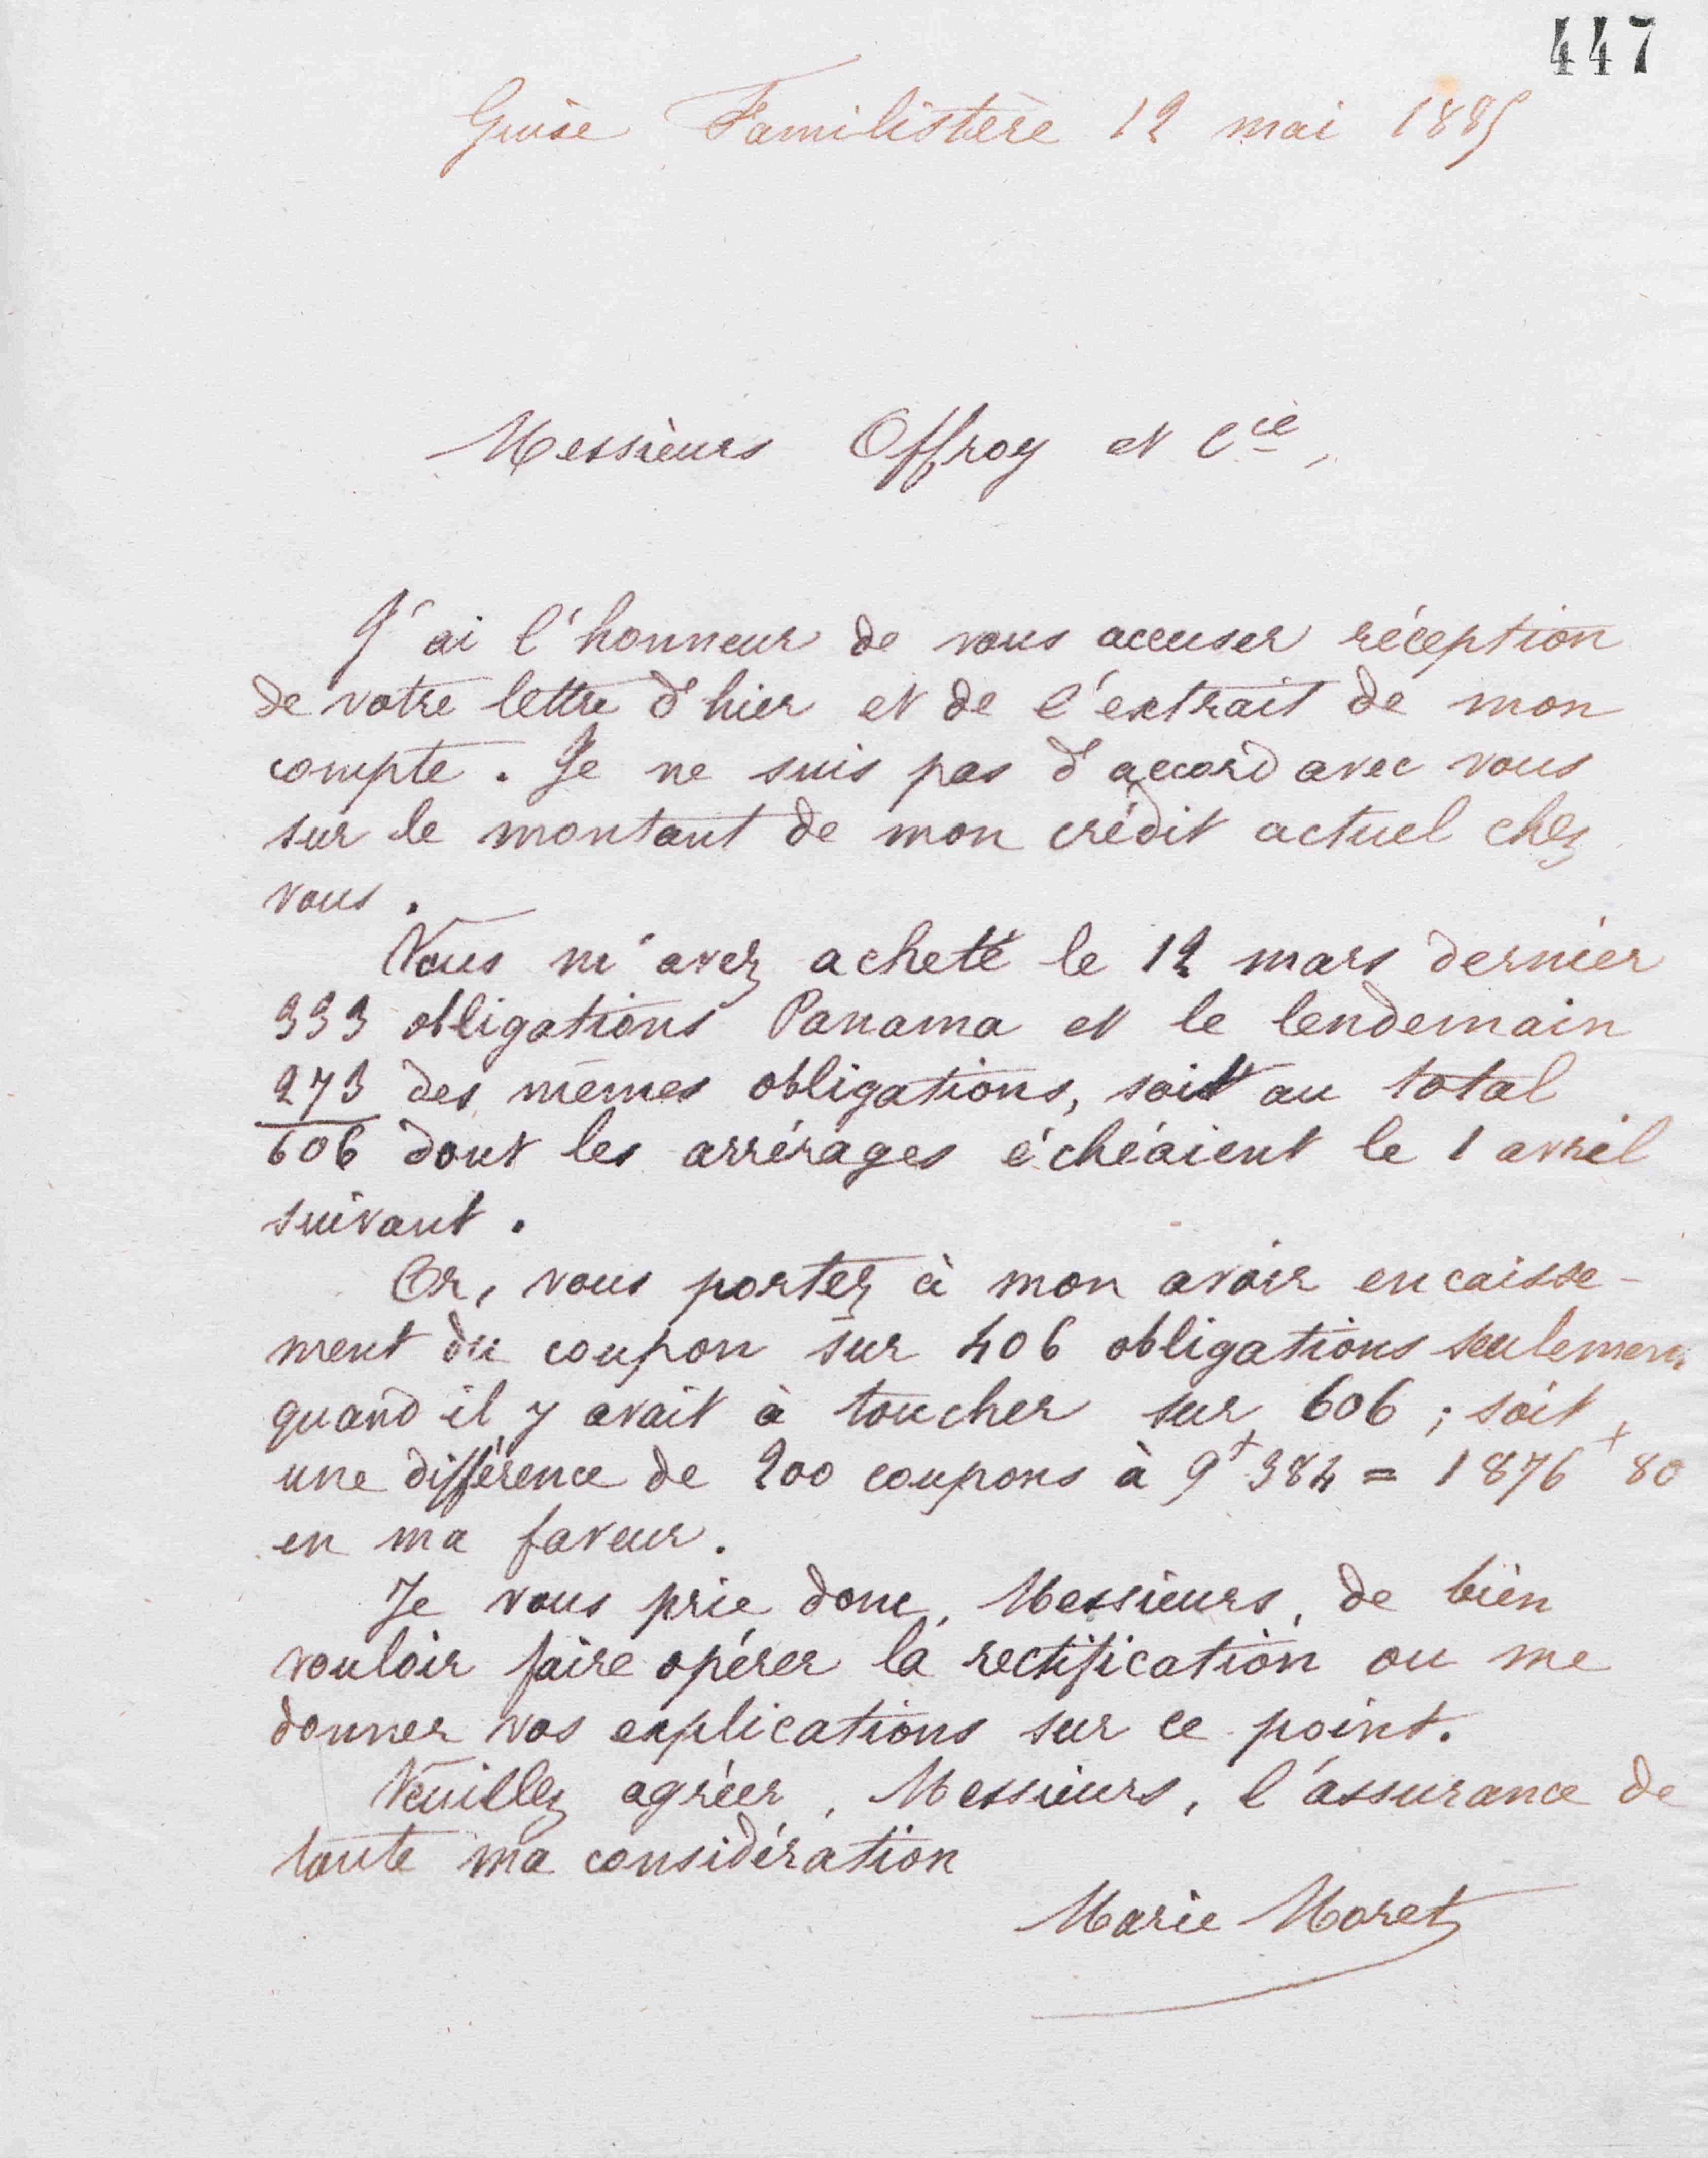 447
Guise Familistère 12 mai 1885
Messieurs Offroy et Cie,
J'ai l'honneur de vous accuser réception
de votre lettre d'hier et de l'extrait de mon
compte. Je ne suis pas d'accord avec vous
sur le montant de mon crédit actuel chez
vous.
Vous m'avez acheté le 12 mars dernier
333 obligations Panama et le lendemain
273 des mêmes obligations, soit au total
606 dont les arrérages échéaient le 1 avril
suivant.
Or, vous portez à mon avoir encaisse-
ment du coupon sur 406 obligations seulement
quand il y avait à toucher sur 606 ; soit,
une différence de 200 coupons à 9f 384 = 1876f 80
en ma faveur.
Je vous prie donc, Messieurs, de bien
vouloir faire opérer la rectification ou me
donner vos explications sur ce point.
Veuillez agréer, Messieurs, l'assurance de
toute ma considération
Marie Moret